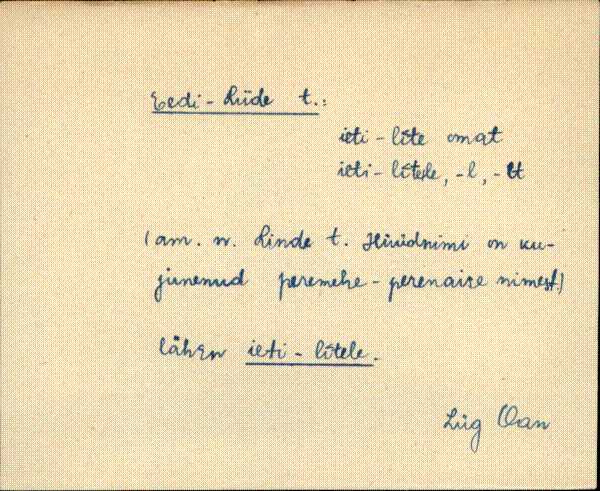 Eedi-Liide t.:
ieti-līte omat
ieti-lītele, -l, -lt
(am. n. Linde t. Hüüdnimi on ku-
junenud peremehe-perenaise nimest.)
lähen ieti-lītele.
Lüg Oan